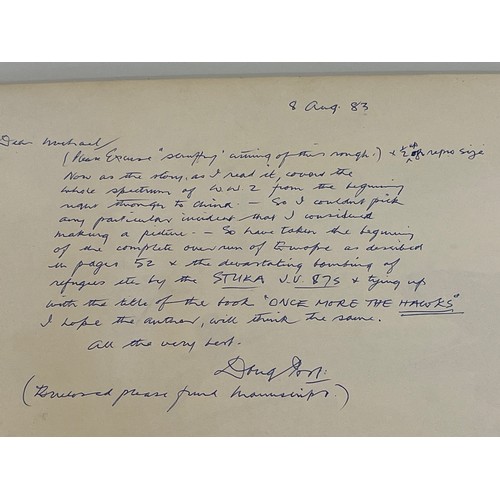 8 Aug. 83
Dear Michael
(Please Excuse "scruffy" writing of this rough.) & ½ up of repro size
Now as the story, as I read it, covers the
whole spectrum of WW2 from the beginning
right through to China. – So I couldn't pick
any particular incident that I considered
making a picture. – So have taken the beginning
of the complete over run of Europe as described
in pages 52 & the devastating bombing of
refugees etc by the STUKA J.V. 87s & tying up
with the title of the book "ONCE MORE THE HAWKS"
I hope the author, will think the same.
All the very best.
Doug
(Enclosed please find Manuscript.)